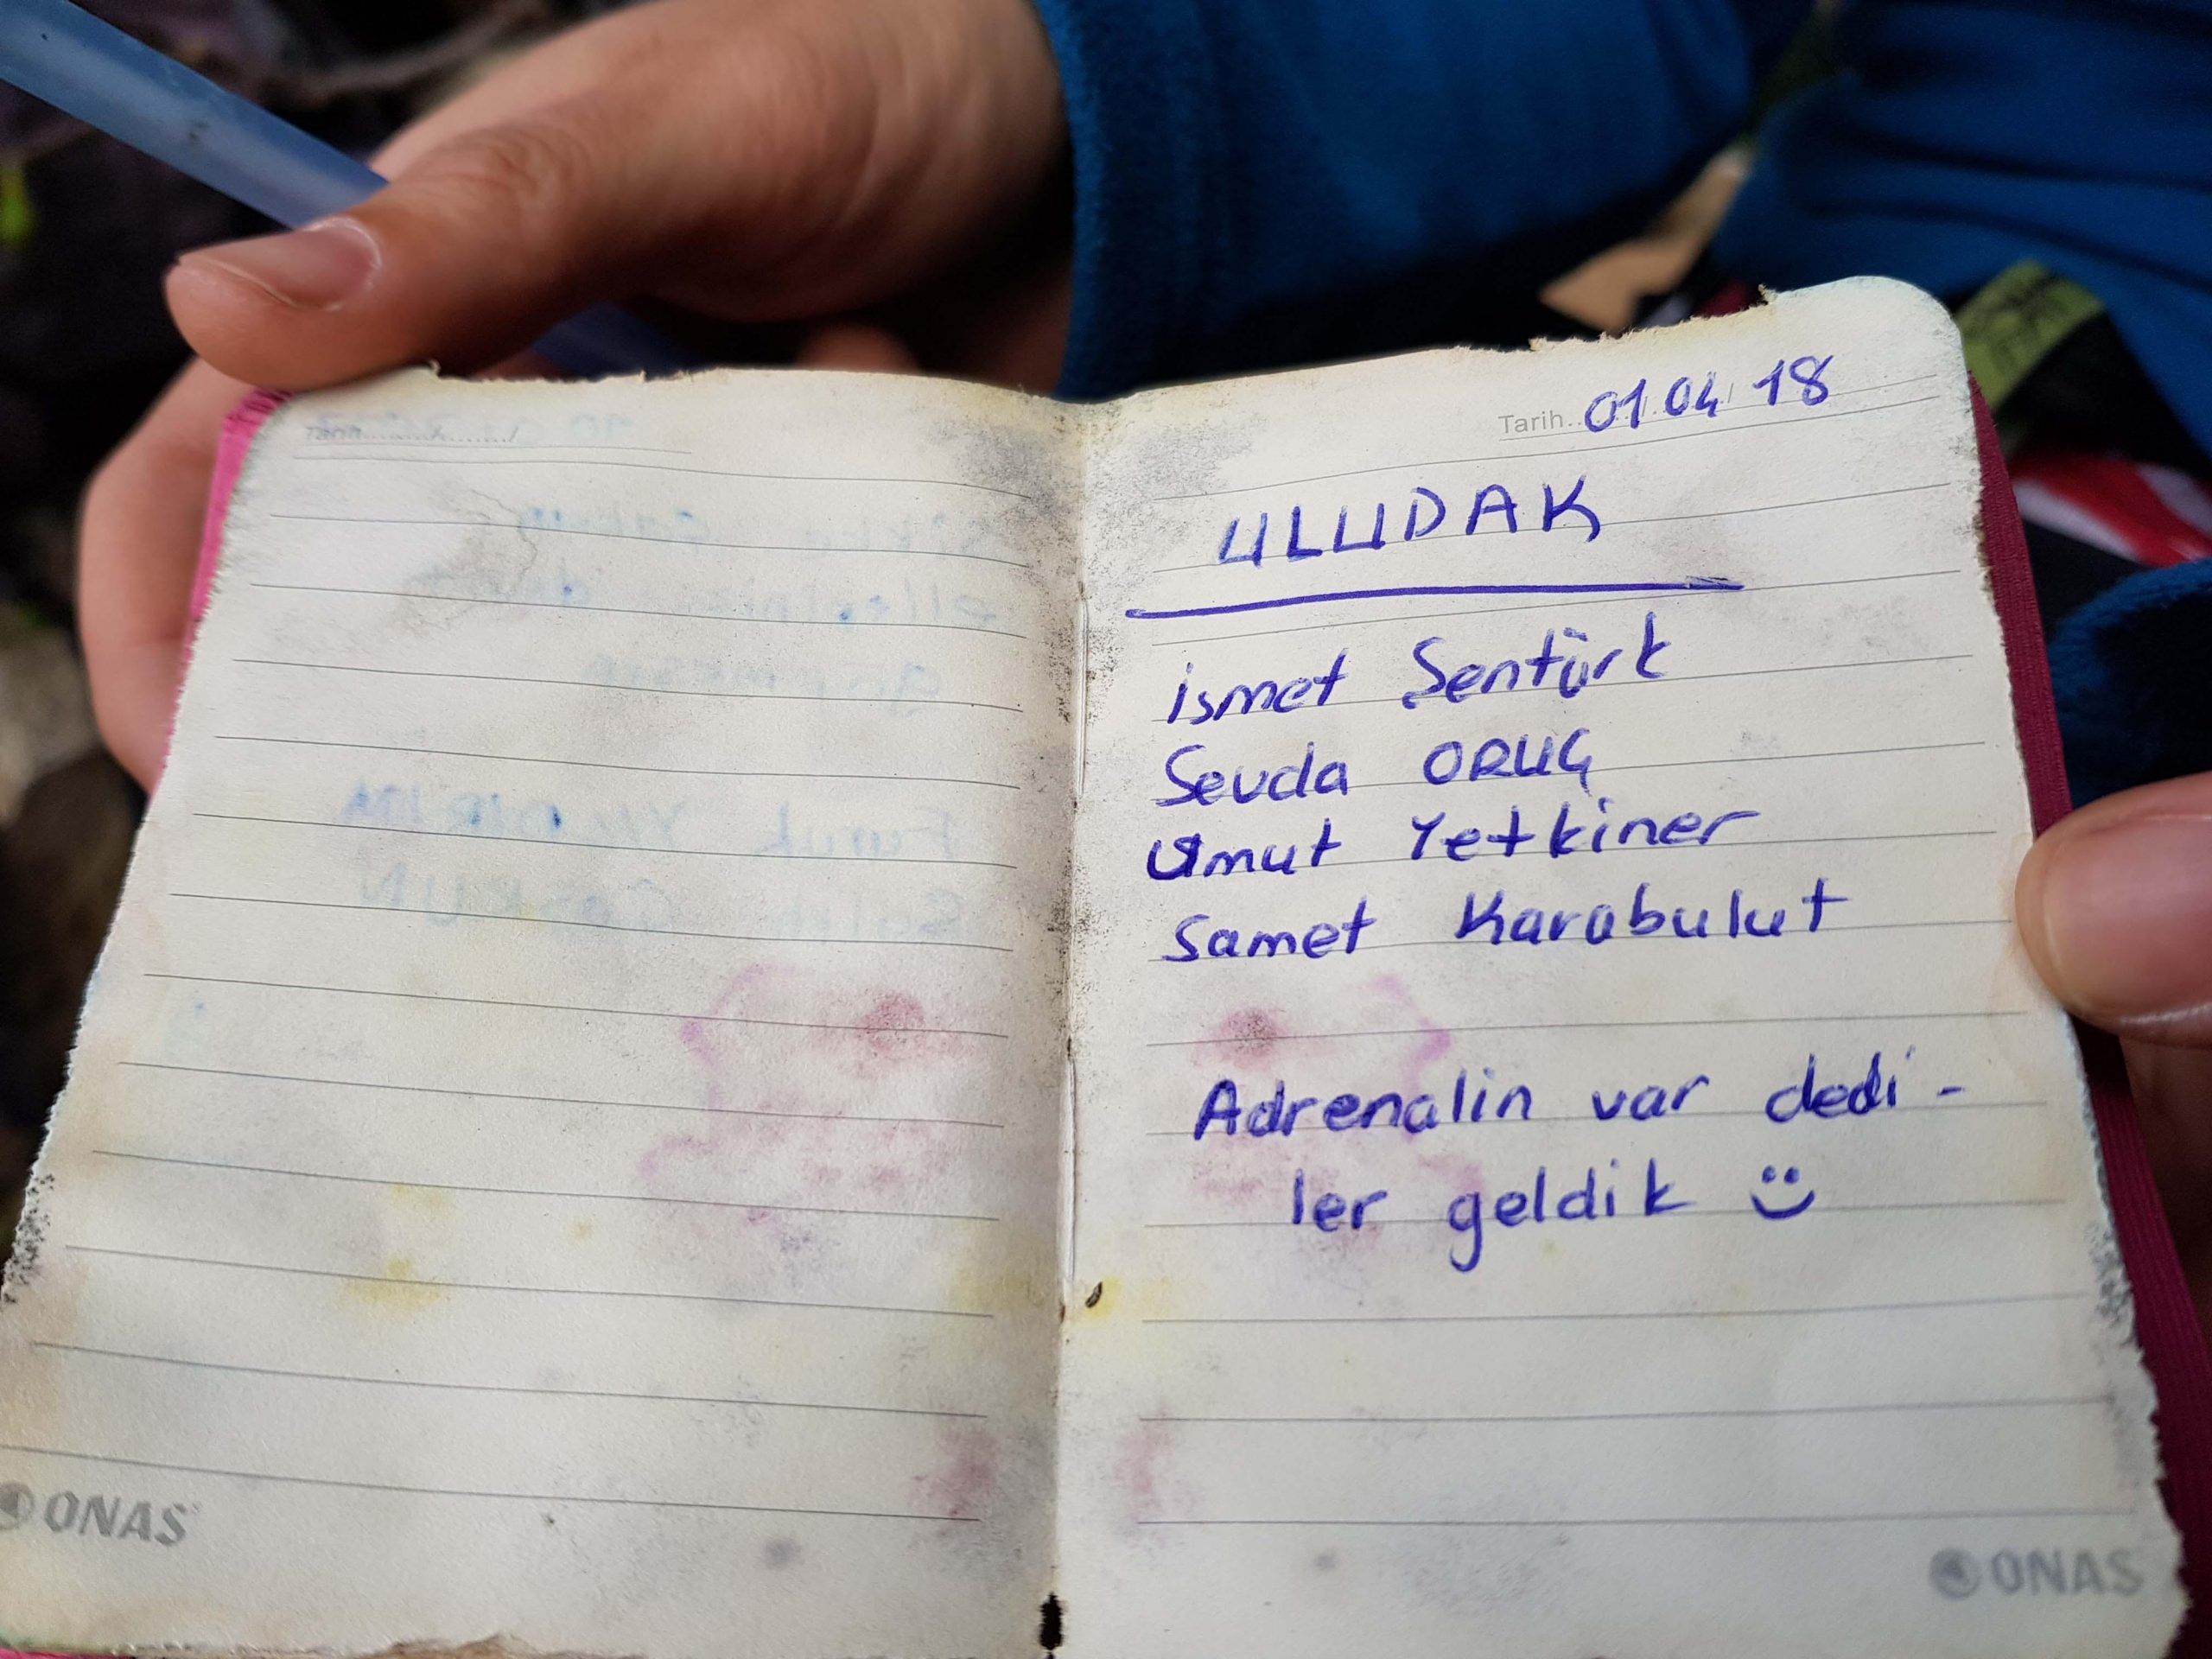 Tarih
ONAS
Tarih 01 04 18
ULUDAK
ismet Şentürk
Sevda ORUÇ
Umut Yetkiner
Samet Karabulut
Adrenalin var dedi -
ler geldik
ONAS